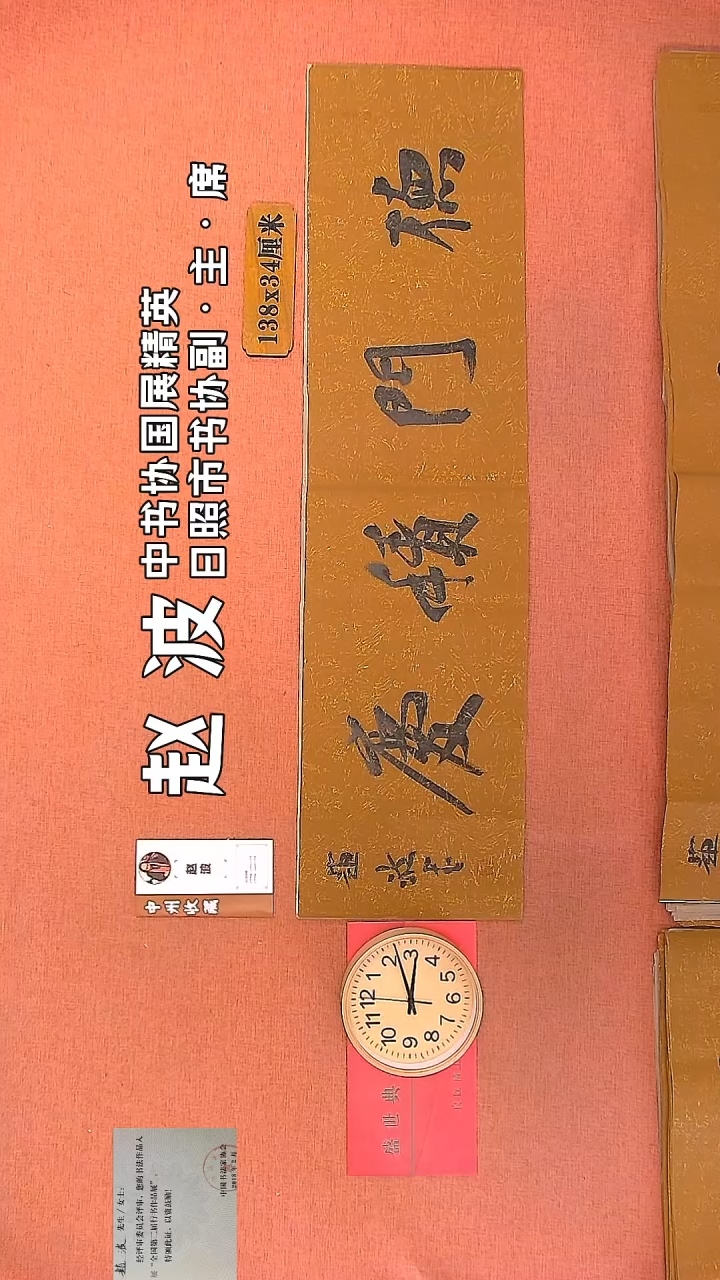 赵波
中书协国展精英
日照市书协副·主·席
138x34厘米
德門積慶
赵波
中州收藏
12
1
2
3
4
5
6
7
8
9
10
11
盛世典
赵波 先生/女士:
经评审委员会评审，您的书法作品入
展“全国第二届行书作品展”，
特颁此证，以资鼓励!
中国书法家协会